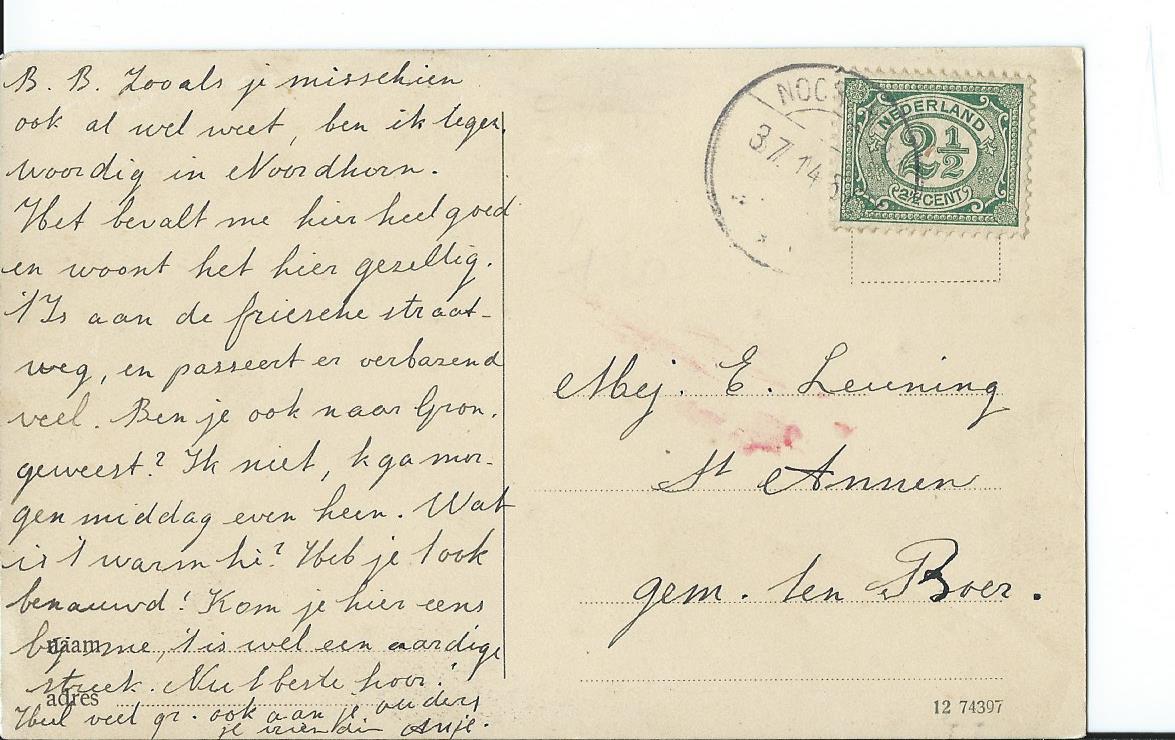 B. B. Zooals je misschien
ook al wel weet, ben ik tegen,
woordig in Noordhorn.
Het bevalt me hier heel goed
en woont het hier gezellig.
't Is aan de friesche straat-
weg, en passeert er verbazend
veel. Ben je ook naar Gron.
geweest? Ik niet, k ga mor-
gen middag even heen. Wat
is 't warm hè? Heb je 't ook
benauwd! Kom je hier eens
bij me, 't is wel een aardige
streek. Nu 't beste hoor!
Heel veel gr. ook aan je ouders
je vriendin Antje.
naam
adres
NOO
3.7.14
NEDERLAND
2½
2½ CENT
Mej. E. Leuning
St Annen
gem. ten Boer.
12 74397